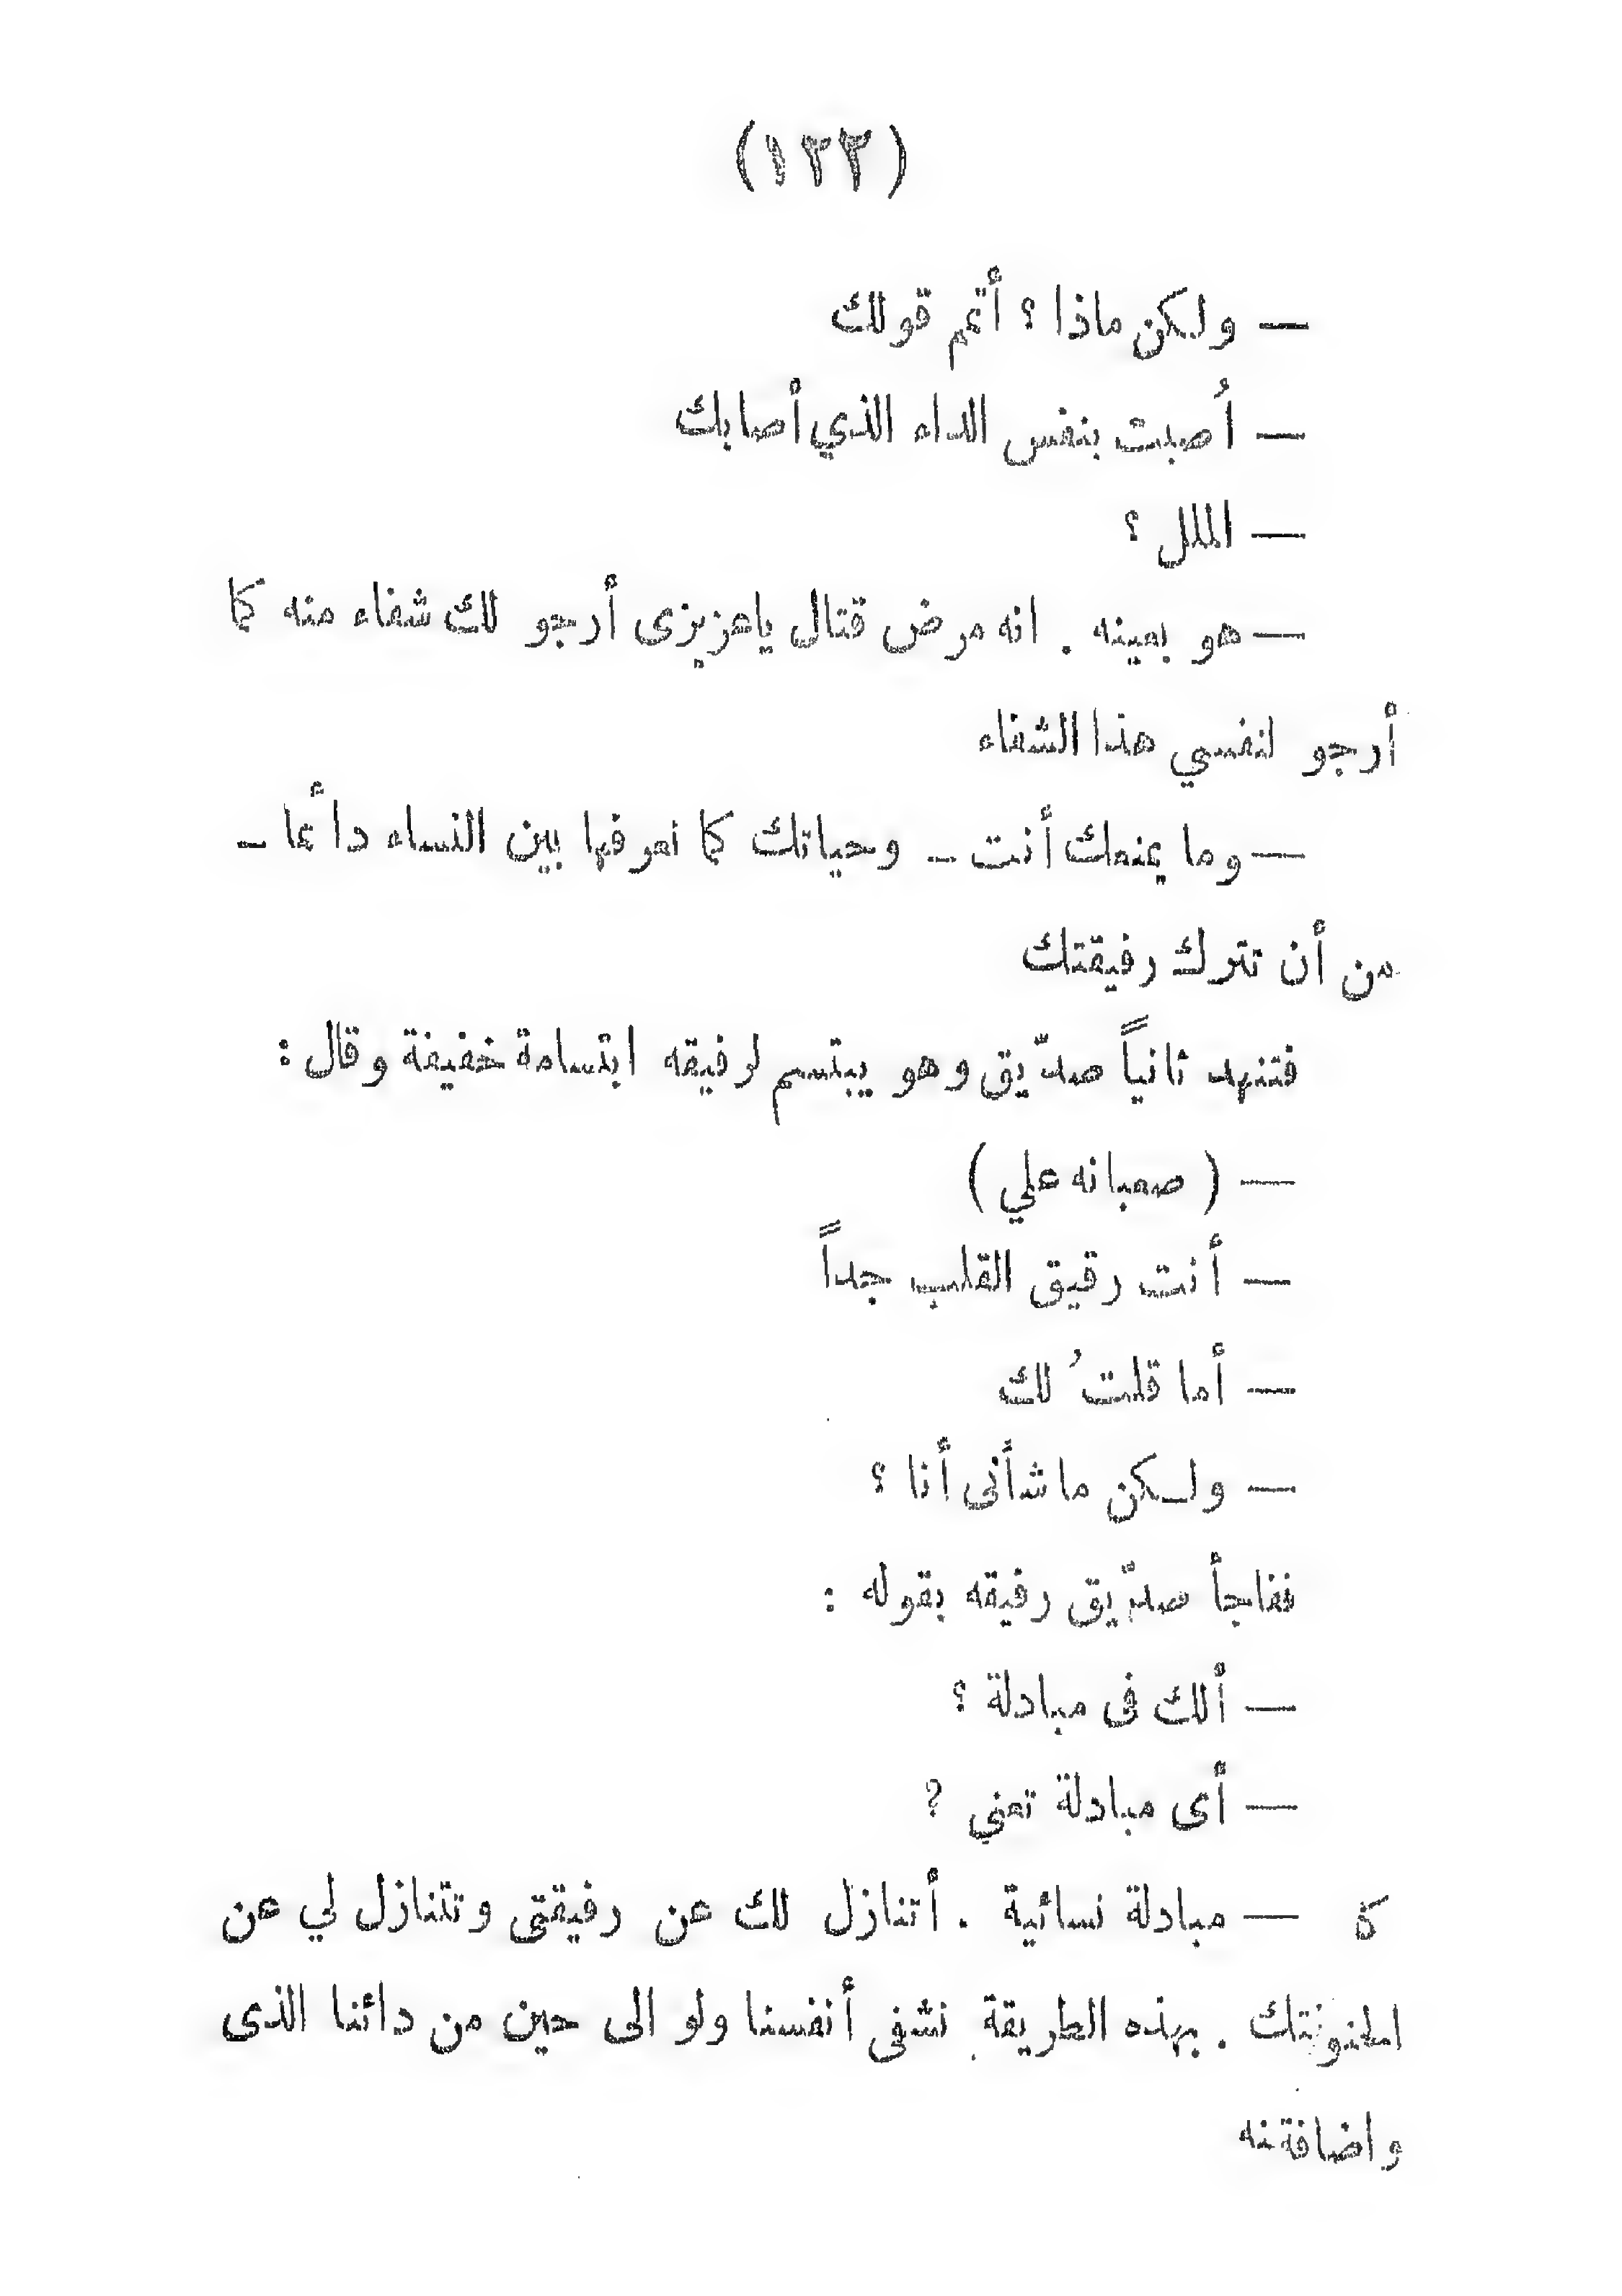 (١٢٢)
— ولكن ماذا ؟ أتمم قولك
— أُصبت بنفس الداء الذي أصابك
— الملل ؟
— هو بعينه . انه مرض قتال ياعزيزى أرجو لك شفاء منه كما
أرجو لنفسي هذا الشفاء
— وما يمنعك أنت - وحياتك كما نعرفها بين النساء دائما -
من أن تترك رفيقتك
فتنهد ثانياً صدّيق وهو يبتسم لرفيقه ابتسامة خفيفة وقال :
— ( صعبانه علي )
— أنت رقيق القلب جداً
— أما قلتُ لك
— ولكن ما شأنى أنا ؟
ففاجأ صدّيق رفيقه بقوله :
— ألك فى مبادلة ؟
— أى مبادلة تعني ?
— مبادلة نسائية . أتنازل لك عن رفيقتى وتتنازل لي عن
. بهذه الطريقة نشفى أنفسنا ولو الى حين من دائنا الذى